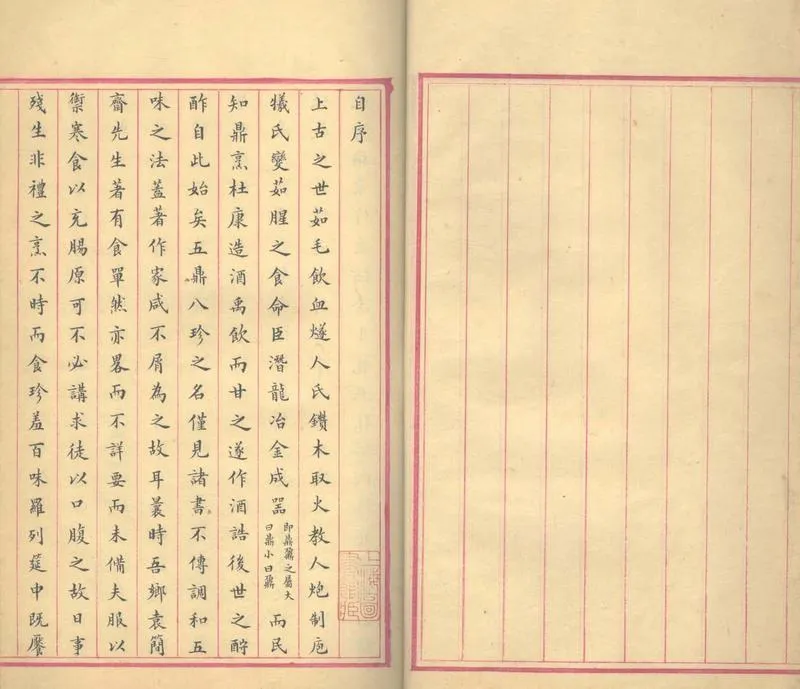 自序
上古之世茹毛飲血燧人氏鑽木取火教人炮制庖
犧氏變茹腥之食命臣潛龍冶金成噐即鼎鼐之屬大曰鼎小曰鼐而民
知鼎烹杜康造酒禹飲而甘之遂作酒誥後世之酧
酢自此始矣五鼎八珍之名僅見諸書不傳調和五
味之法蓋著作家咸不屑為之故耳曩時吾鄉袁簡
齋先生著有食單然亦畧而不詳要而未備夫服以
禦寒食以充腸原可不必講求徒以口腹之故日事
殘生非禮之烹不時而食珍羞百味羅列筵中既饜